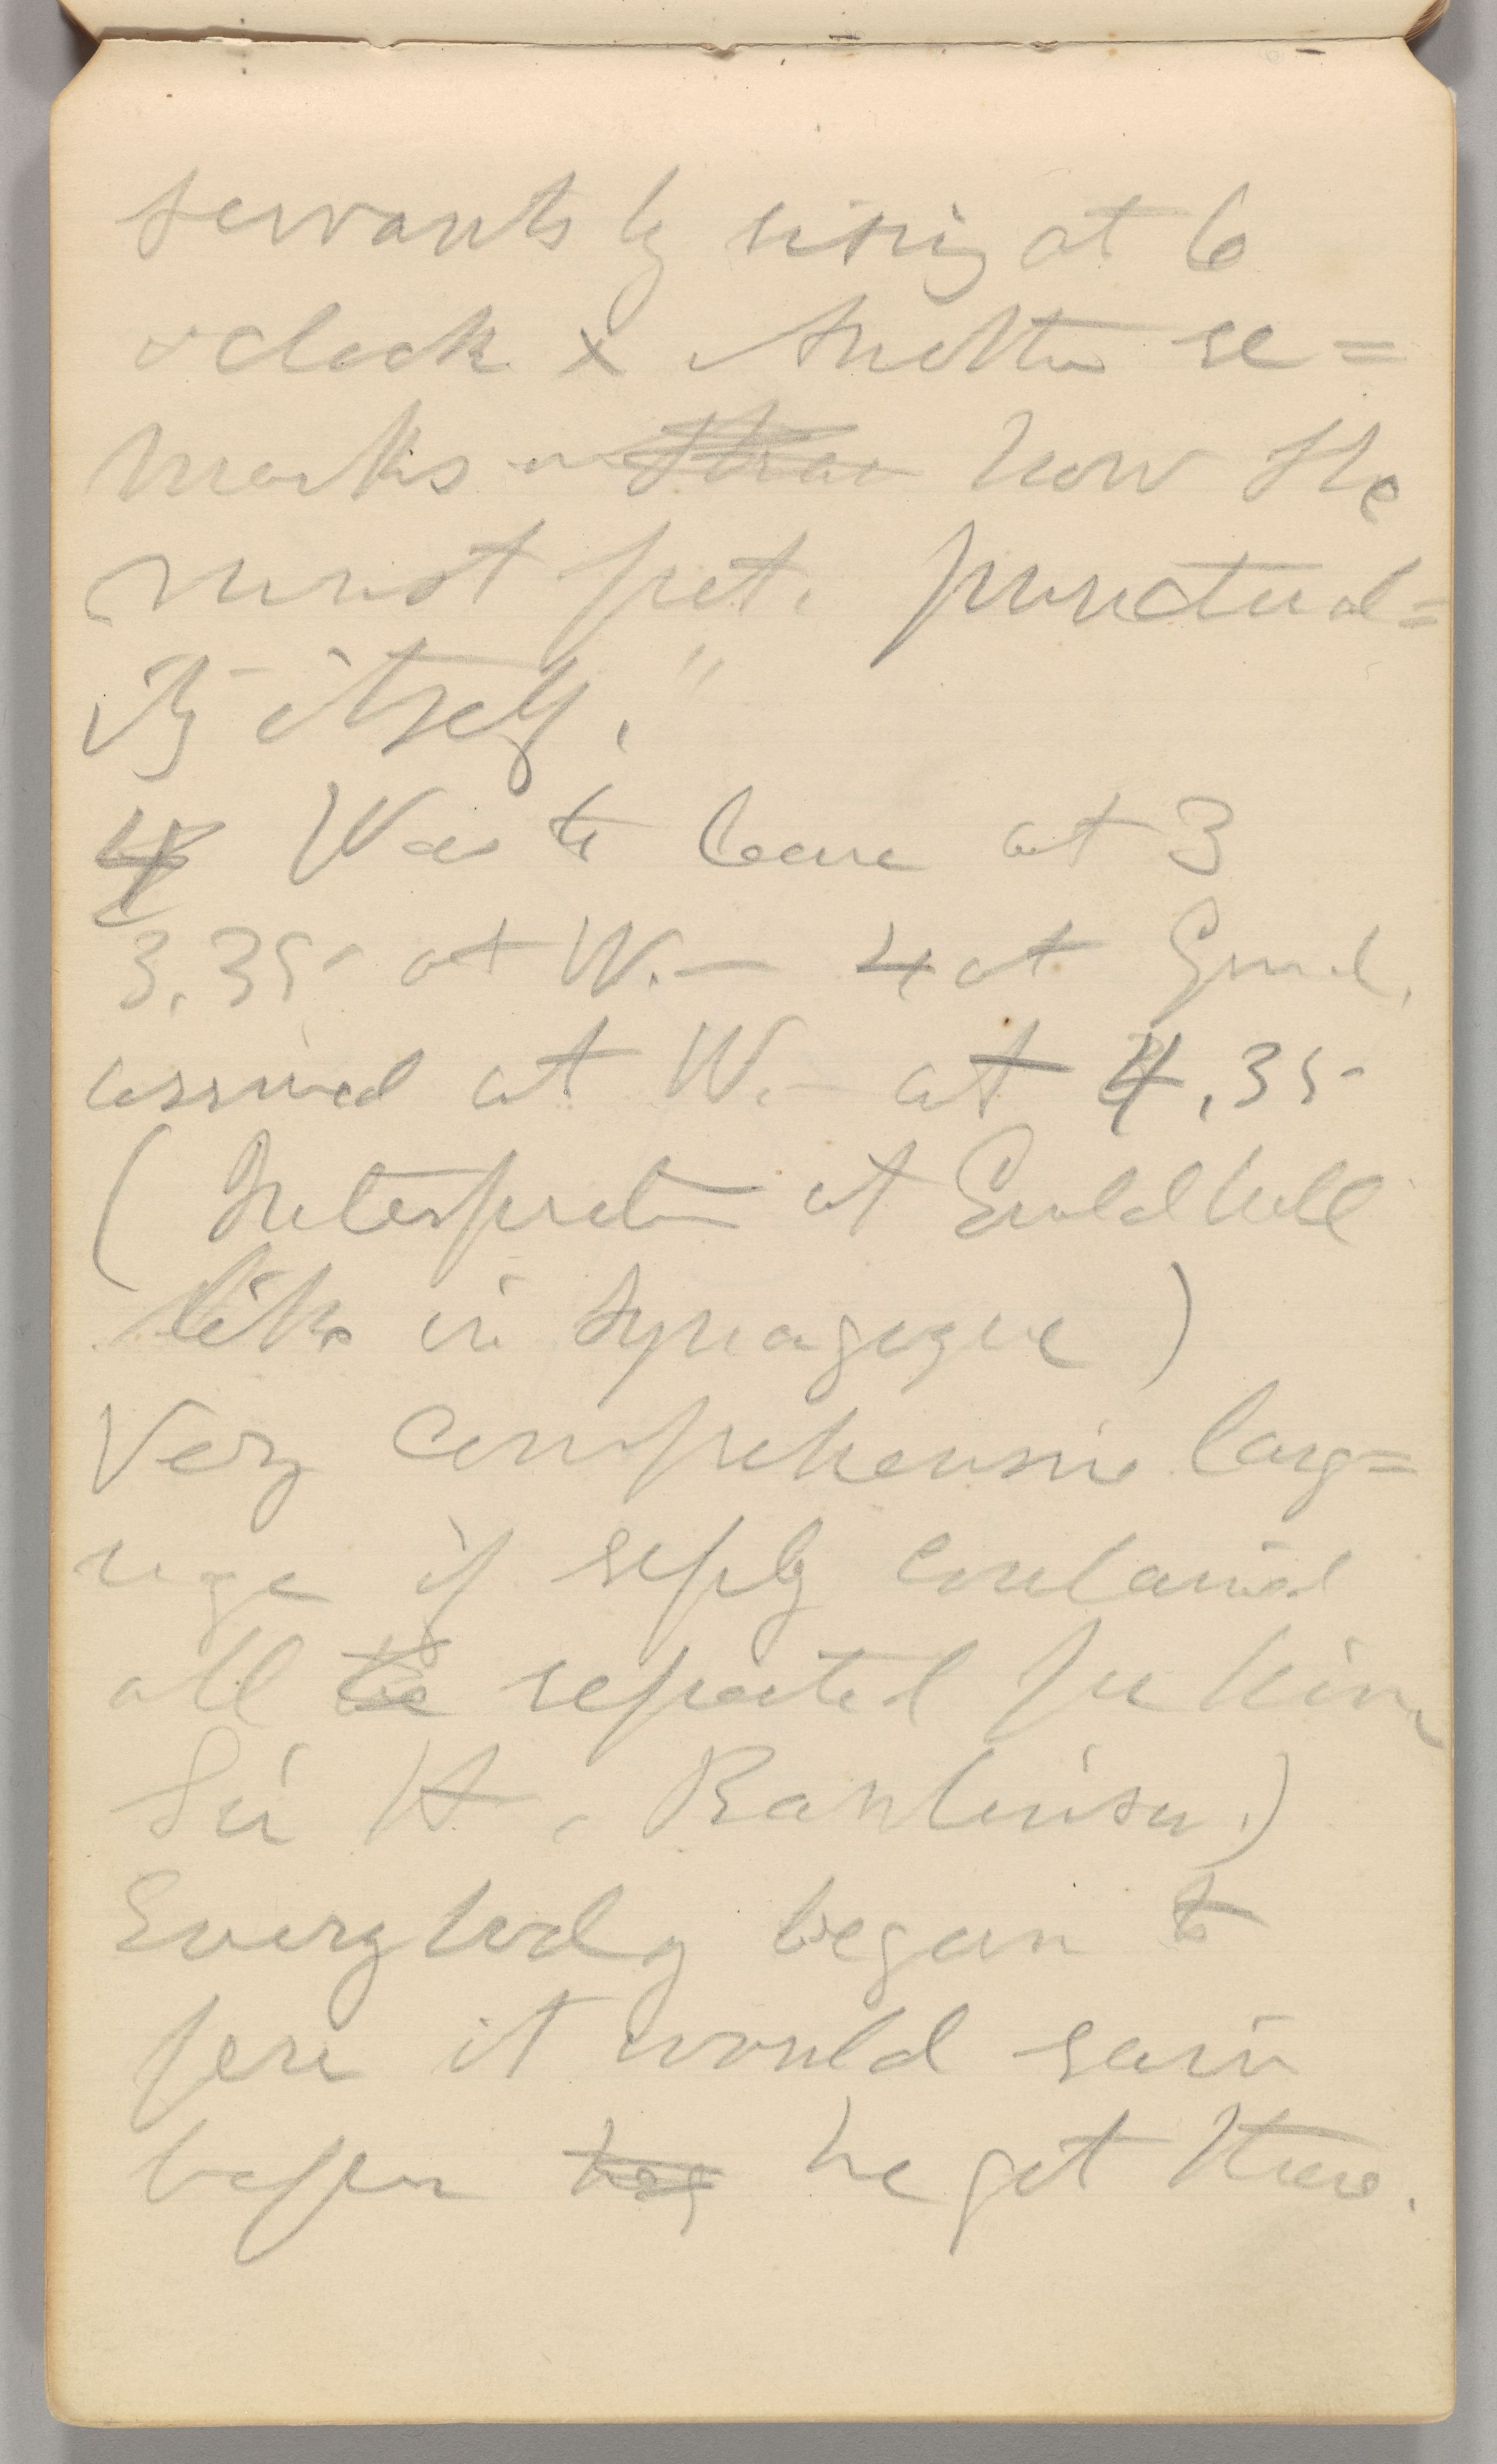 servants by rising at 6
o'clock x Another re=
marks on how he
must pet. punctual=
ity itself."
4 Was to leave at 3
3.35 at W. — 4 at Guild.
arrived at W. — at 4.35
( Interpreter at Guildhall
like in synagogue )
Very comprehensive lang=
uage if reply contained
all he reported for him
Sir H. Rawlinson.)
Everybody began to
fear it would rain
before they he got there.